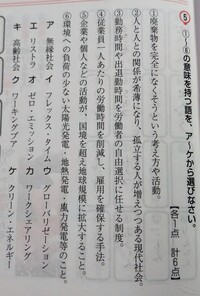 5 ①～⑥の意味を持つ語を、ア～ケから選びなさい。
【各1点 計6点】
①廃棄物を完全になくそうという考え方や活動。
②人と人との関係が希薄になり、孤立する人が増えつつある現代社会。
③勤務時間や出退勤時間を労働者の自由選択に任せる制度。
④従業員一人あたりの労働時間を削減し、雇用を確保する手法。
⑤企業や個人などの活動が、国境を超え地球規模に拡大すること。
⑥環境への負荷の少ない太陽光発電・地熱発電・風力発電等のこと。
ア 無縁社会 イ フレックス・タイム ウ グローバリゼーション
エ リストラ オ ゼロ・エミッション カ ワークシェアリング
キ 高齢社会 ク ワーキングプア ケ クリーン・エネルギー